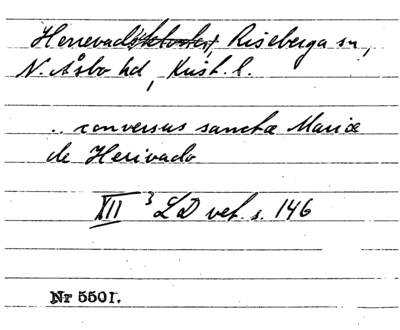 Herrevadskloster, Riseberga sn,
N. Åsbo hd, Krist. l.
.. conversus sanctæ Mariæ
de Herivado
XII ³ LD vet. s. 146
Nr 5501.